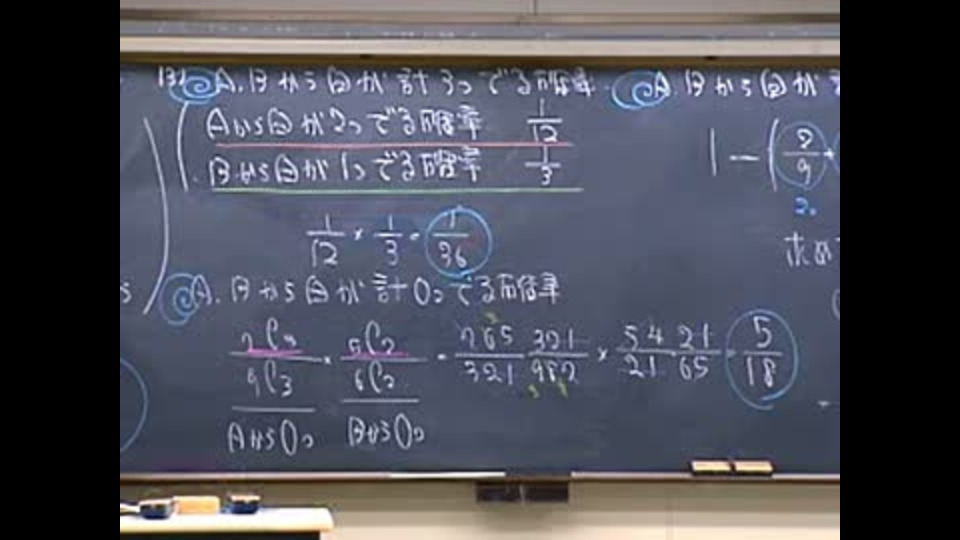 A.Bから白が計3つでる確率
Aから白が2つでる確率 1/12
Bから白が1つでる確率 1/3
1/12 × 1/3 = 1/36
A.Bから白が計0つでる確率
7C3/9C3 × 5C2/6C2 = 765/321 321/987 × 54/21 21/65 = 5/18
Aから0つ Bから0つ
A.Bから白が
1-(
求め